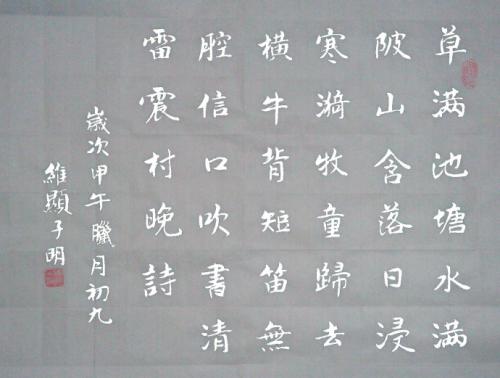 草满池塘水满
陂山含落日浸
寒漪牧童歸去
橫牛背短笛無
腔信口吹書清
雷震村晚詩
歲次甲午臘月初九
維顯子明